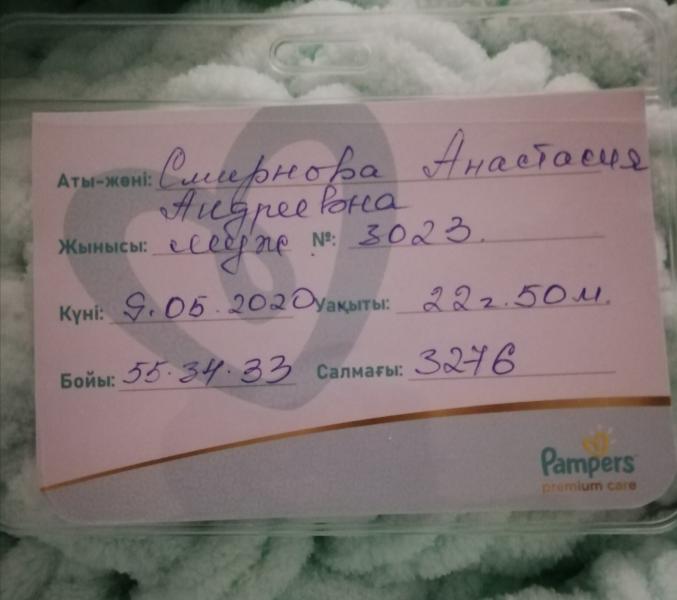 Аты-жөні: Смирнова Анастасия
Андреевна
Жынысы: муж №: 3023.
Күні: 9.05.2020 Уақыты: 22г.50м.
Бойы: 55.34.33 Салмағы: 3276
Pampers
premium care